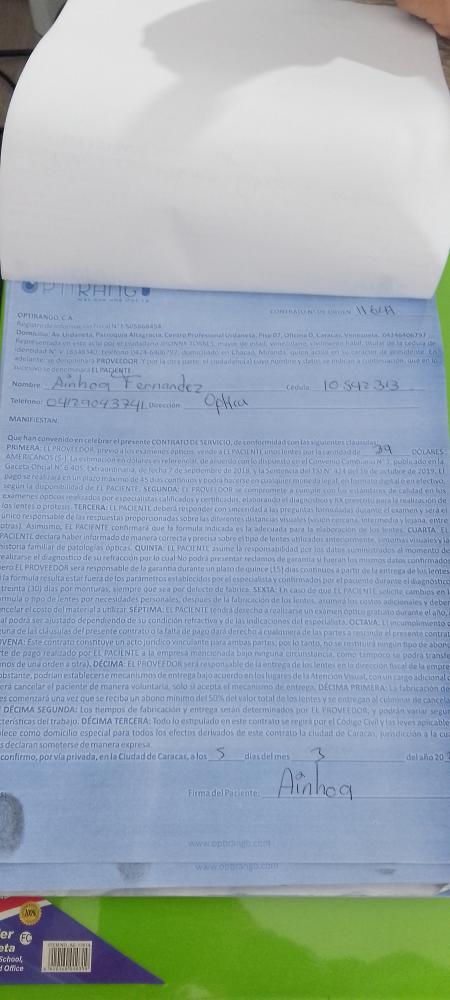 OPTIRANGO
OPTIRANGO, C.A.
CONTRATO N° DE ORDEN
Domicilio: Av. Urdaneta, Parroquia Altagracia, Centro Profesional Urdaneta, Piso 07, Oficina D, Caracas, Venezuela. 04246406797
Nombre: Ainhoa Fernandez Cédula: 10542313
Teléfono: 04129043741 Dirección: Optica
MANIFIESTAN:
Que han convenido en celebrar el presente CONTRATO DE SERVICIO, de conformidad con las siguientes cláusulas:
PRIMERA: EL PROVEEDOR, previo a los exámenes ópticos, vende a EL PACIENTE unos lentes por la cantidad de 39 DÓLARES
AMERICANOS ($). La estimación en dólares es referencial, de acuerdo con lo dispuesto en el Convenio Cambiario N° 1, publicado en la
Gaceta Oficial N° 6.405, Extraordinaria, de fecha 7 de septiembre de 2018, y la Sentencia del TSJ N° 424 del 16 de octubre de 2019. EL
pago se realizará en un plazo máximo de 45 días continuos y podrá hacerse en cualquier moneda legal, en forma digital o en efectivo,
según la disponibilidad de EL PACIENTE. SEGUNDA: EL PROVEEDOR se compromete a cumplir con los estándares de calidad en los
exámenes ópticos realizados por especialistas calificados y certificados, elaborando el diagnóstico y RX prescrito para la realización de
los lentes o prótesis. TERCERA: EL PACIENTE deberá responder con sinceridad a las preguntas formuladas durante el examen y será el
único responsable de las respuestas proporcionadas sobre las diferentes distancias visuales (visión cercana, intermedia y lejana, entre
otras). Asimismo, EL PACIENTE confirmará que la fórmula indicada es la adecuada para la elaboración de los lentes. CUARTA: EL
PACIENTE declara haber informado de manera correcta y precisa sobre el tipo de lentes utilizados anteriormente, síntomas visuales y la
historia familiar de patologías ópticas. QUINTA: EL PACIENTE asume la responsabilidad por los datos suministrados al momento de
realizarse el diagnóstico de su refracción por lo cual No podrá presentar reclamos de garantía si fueran los mismos datos confirmados
pero EL PROVEEDOR será responsable de la garantía durante un plazo de quince (15) días continuos a partir de la entrega de los lentes
la fórmula resulta estar fuera de los parámetros establecidos por el especialista y confirmados por el paciente durante el diagnóstico
treinta (30) días por monturas, siempre que sea por defecto de fábrica. SEXTA: En caso de que EL PACIENTE solicite cambios en
fórmula o tipo de lentes por necesidades personales, después de la fabricación de los lentes, asumirá los costos adicionales y deberá
cancelar el costo del material a utilizar. SÉPTIMA: EL PACIENTE tendrá derecho a realizarse un examen óptico gratuito durante el año,
al podrá ser ajustado dependiendo de su condición refractiva y de las indicaciones del especialista. OCTAVA: El incumplimiento
una de las cláusulas del presente contrato o la falta de pago dará derecho a cualquiera de las partes a rescindir el presente contrato
NOVENA: Este contrato constituye un acto jurídico vinculante para ambas partes; por lo tanto, no se restituirá ningún tipo de abono
te de pago realizado por EL PACIENTE a la empresa mencionada bajo ninguna circunstancia, como tampoco se podrá transferir
nos de una orden a otra). DÉCIMA: EL PROVEEDOR será responsable de la entrega de los lentes en la dirección fiscal de la empre
obstante, podrían establecerse mecanismos de entrega bajo acuerdo en los lugares de la Atención Visual, con un cargo adicional
erá cancelar el paciente de manera voluntaria, sólo si acepta el mecanismo de entrega. DÉCIMA PRIMERA: La fabricación de
es comenzará una vez que se reciba un abono mínimo del 50% del valor total de los lentes y se entregan al culminar de cancela
DÉCIMA SEGUNDA: Los tiempos de fabricación y entrega serán determinados por EL PROVEEDOR, y podrán variar según
cterísticas del trabajo. DÉCIMA TERCERA: Todo lo estipulado en este contrato se regirá por el Código Civil y las leyes aplicable
lece como domicilio especial para todos los efectos derivados de este contrato la ciudad de Caracas, jurisdicción a la cu
s declaran someterse de manera expresa.
confirmo, por vía privada, en la Ciudad de Caracas, a los 5 días del mes 3 del año 20
Firma del Paciente: Ainhoa
www.optirango.com
www.optirango.com
200%
er
eta
FC
School,
d Office